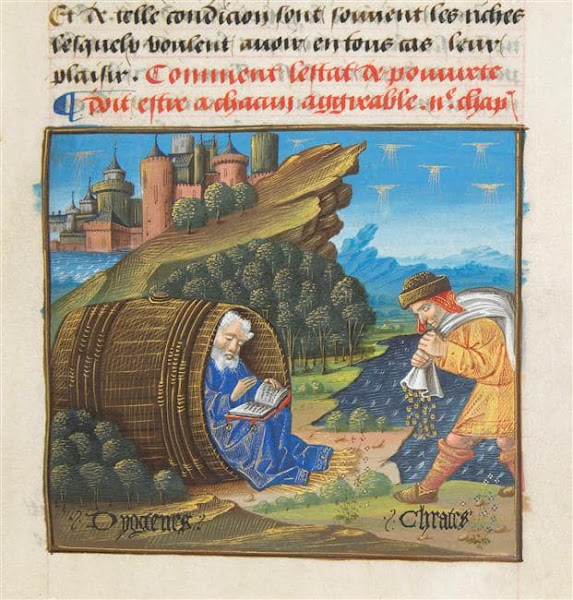 Et de telle condicion sont souvent les riches
lesquelz veulent auoir en tous cas leur
plaisir. Comment lestat de pouurete
doit estre a chacun aggreable. iiᵉ chapᵉ
Dyogenes
Chrates